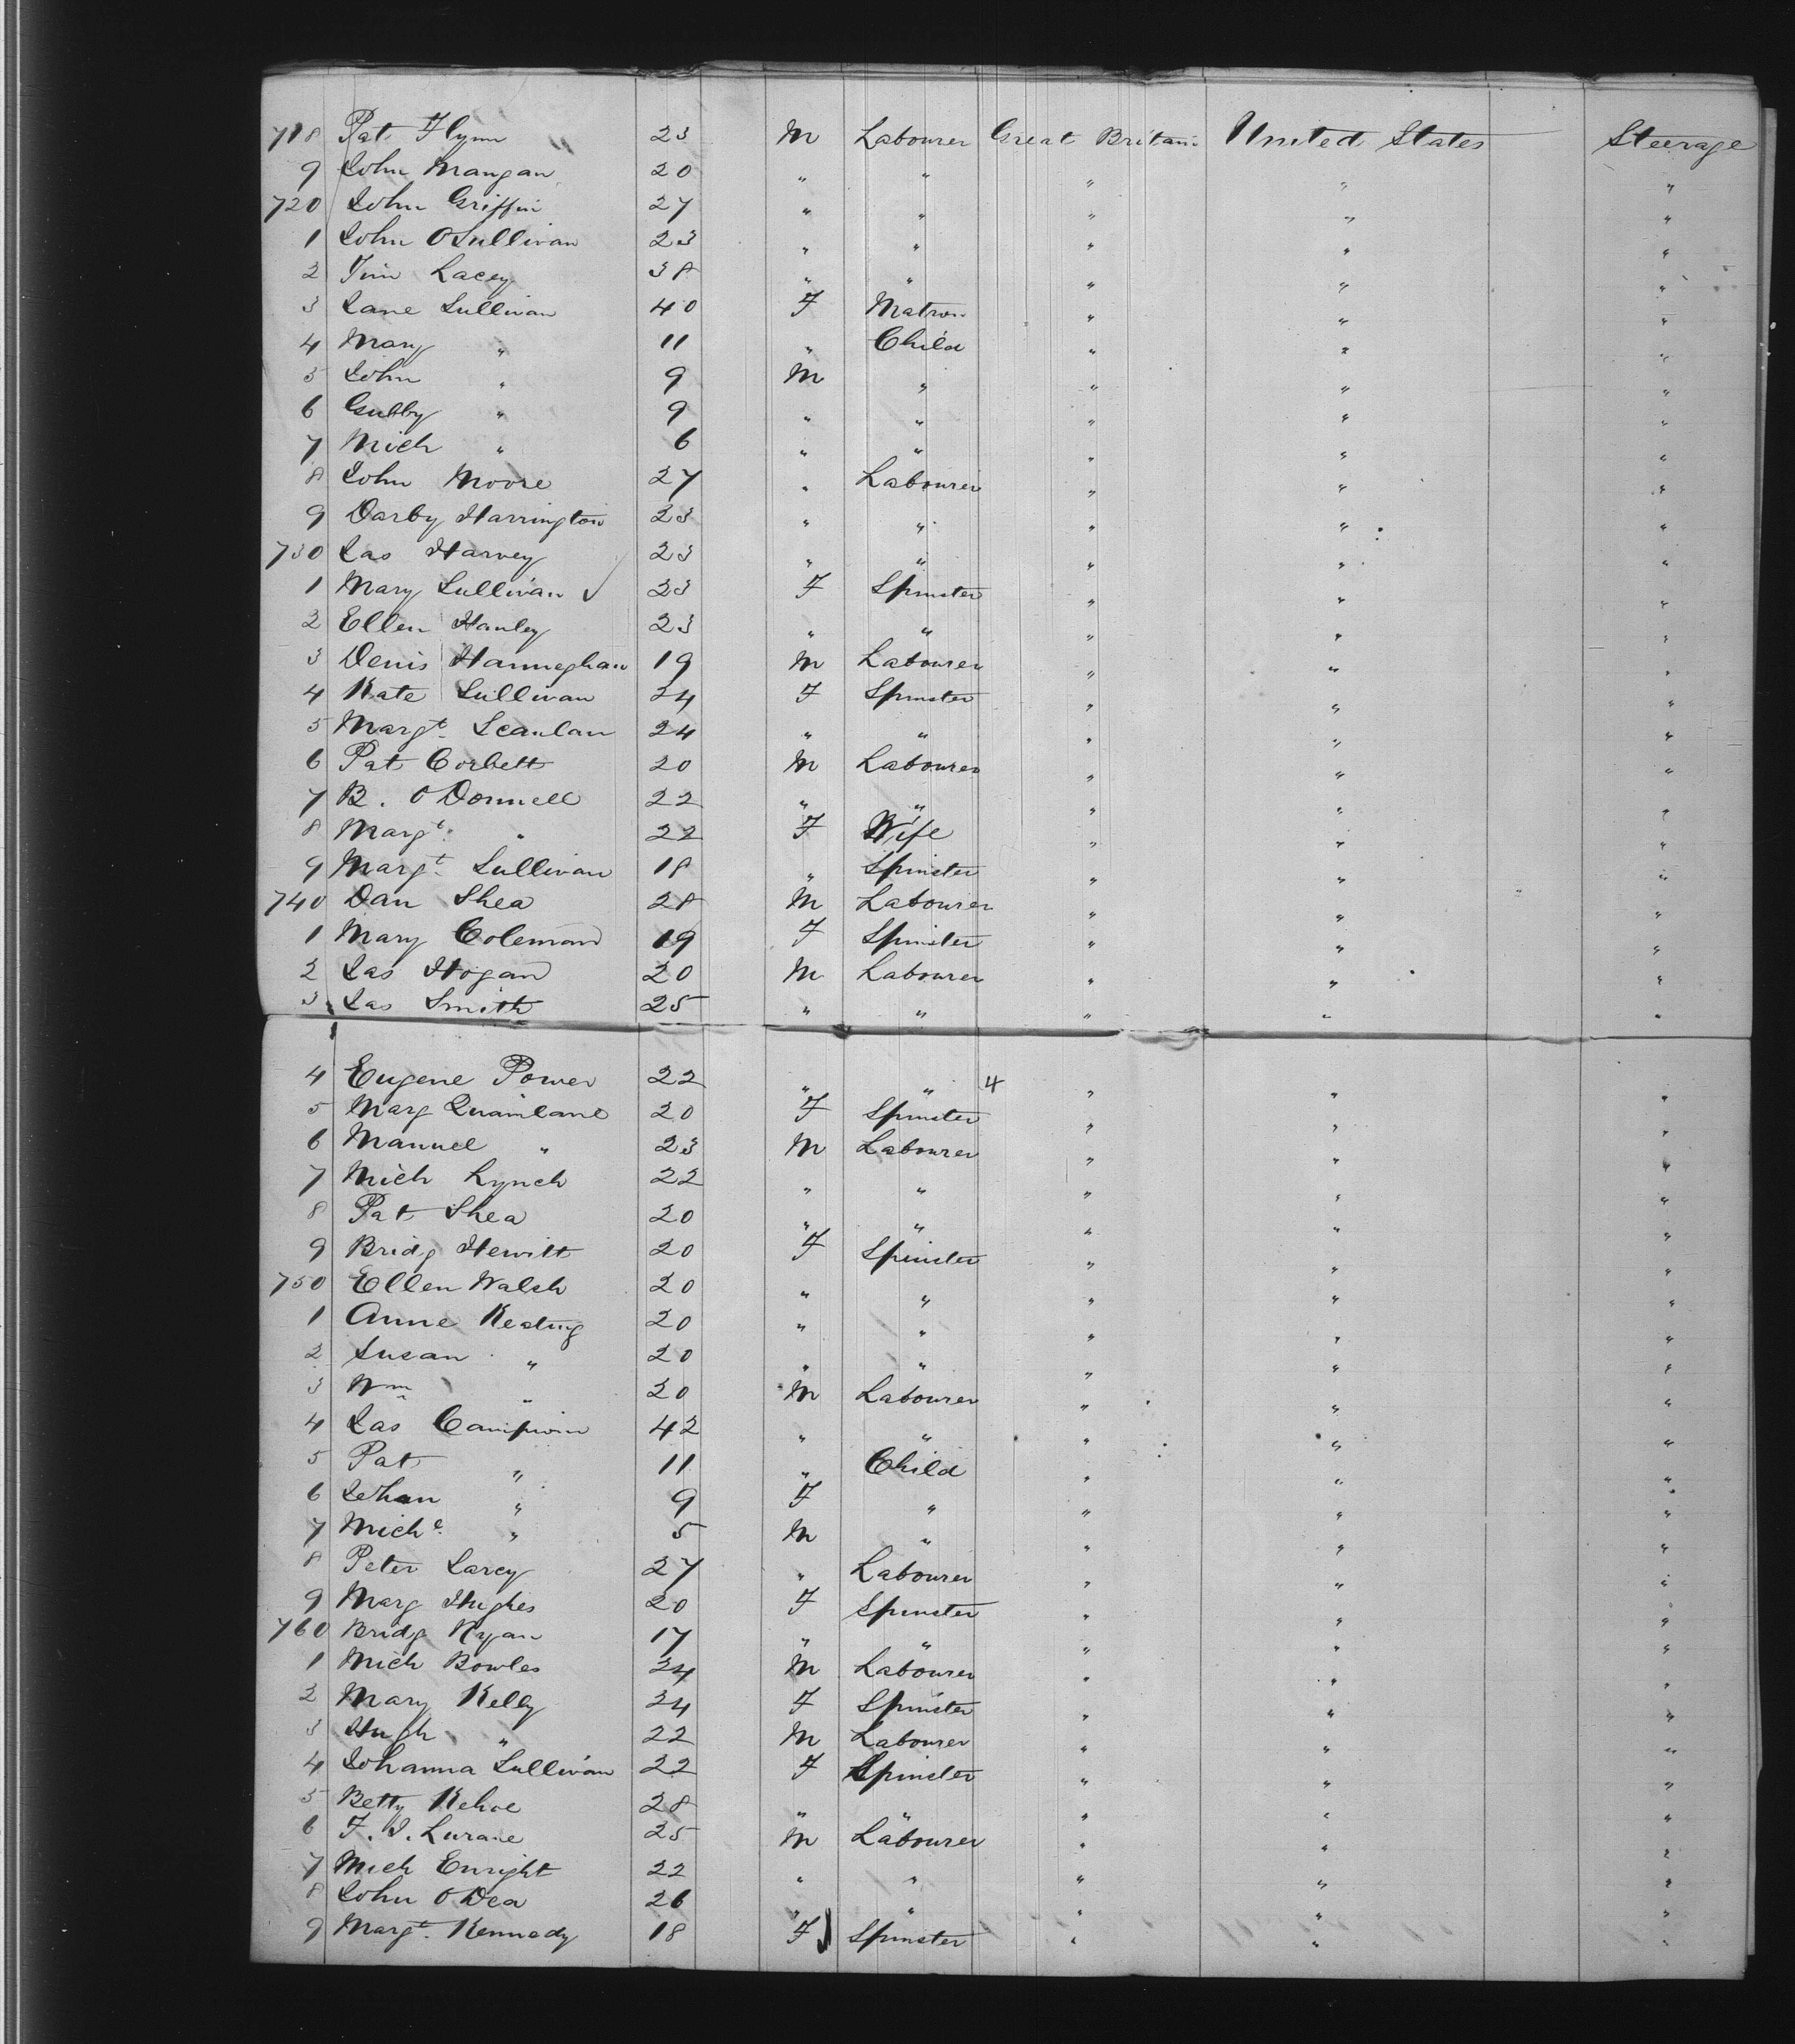 718 Pat Flynn 23 M Labourer Great Britain United States Steerage
9 John Mangan 20 " " " " "
720 John Griffin 27 " " " " "
1 John OSullivan 23 " " " " "
2 Jim Lacey 38 " " " " "
3 Jane Sullivan 40 F Matron " " "
4 Mary " 11 " Child " " "
5 John " 9 M " " " "
6 Gubby " 9 " " " " "
7 Mich " 6 " " " " "
8 John Moore 27 " Labourer " " "
9 Darby Harrington 23 " " " " "
730 Jas Harvey 23 " " " " "
1 Mary Sullivan ✓ 23 F Spinster " " "
2 Ellen Hanley 23 " " " " "
3 Denis Hanneghan 19 M Labourer " " "
4 Kate Sullivan 24 F Spinster " " "
5 Margt. Scanlan 24 " " " " "
6 Pat Corbett 20 M Labourer " " "
7 B. ODonnell 22 " " " " "
8 Margt. " 22 F Wife " " "
9 Margt. Sullivan 18 " Spinster " " "
740 Dan Shea 28 M Labourer " " "
1 Mary Coleman 19 F Spinster " " "
2 Jas Hogan 20 M Labourer " " "
3 Jas Smith 25 " " " " "
4 Eugene Power 22 " " 4 " " "
5 Marg Quinlane 20 F Spinster " " "
6 Manuel " 23 M Labourer " " "
7 Mich Lynch 22 " " " " "
8 Pat Shea 20 " " " " "
9 Bridg Hewitt 20 F Spinster " " "
750 Ellen Walsh 20 " " " " "
1 Anne Keating 20 " " " " "
2 Susan " 20 " " " " "
3 Wm " 20 M Labourer " " "
4 Jas 42 " " " " "
5 Pat " 11 " Child " " "
6 Johan " 9 F " " " "
7 Michl. " 5 M " " " "
8 Peter Sarcy 27 " Labourer " " "
9 Marg Hughes 20 F Spinster " " "
760 Bridg Ryan 17 " " " " "
1 Mich Bowles 24 M Labourer " " "
2 Mary Kelly 24 F Spinster " " "
3 Hugh " 22 M Labourer " " "
4 Johanna Sullivan 22 F Spinster " " "
5 Betty Kehoe 28 " " " " "
6 F. J. Lurane 25 M Labourer " " "
7 Mich Enright 22 " " " " "
8 John O Dea 26 " " " " "
9 Margt. Kennedy 18 F Spinster " " "